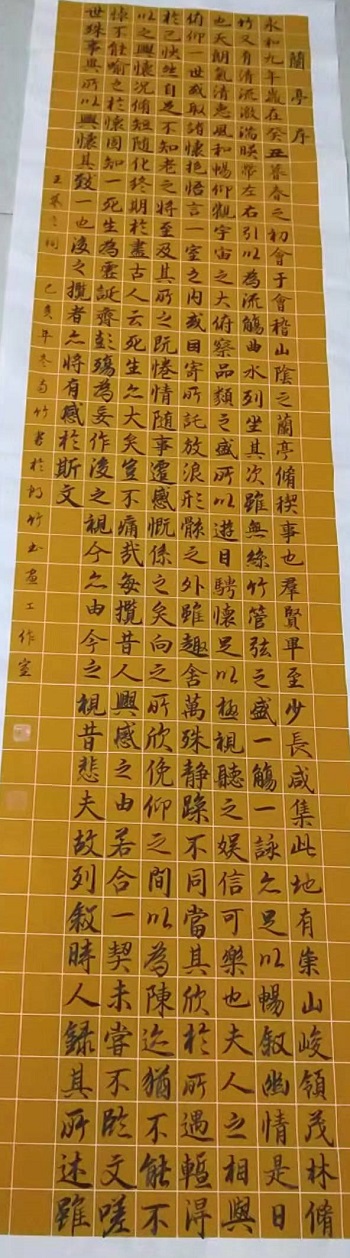 蘭亭序
永和九年歲在癸丑暮春之初會于會稽山陰之蘭亭脩禊事也羣賢畢至少長咸集此地有崇山峻領茂林脩
竹又有清流激湍暎帶左右引以為流觴曲水列坐其次雖無絲竹管弦之盛一觴一詠亦足以暢敘幽情是日
也天朗氣清惠風和暢仰觀宇宙之大俯察品類之盛所以遊目騁懷足以極視聽之娛信可樂也夫人之相與
俯仰一世或取諸懷抱悟言一室之内或因寄所託放浪形骸之外雖趣舍萬殊静躁不同當其欣於所遇暫得
於己快然自足不知老之將至及其所之既惓情随事遷感慨係之矣向之所欣俛仰之間以為陳迹猶不能不
以之興懷況脩短随化終期於盡古人云死生亦大矣豈不痛哉每攬昔人興感之由若合一契未嘗不臨文嗟
悼不能喻之於懷固知一死生為虛誕齊彭殤為妄作後之視今亦由今之視昔悲夫故列敘時人錄其所述雖
世殊事異所以興懷其致一也後之攬者亦將有感於斯文
王羲之詞 己亥年冬 竹書於 竹书画工作室